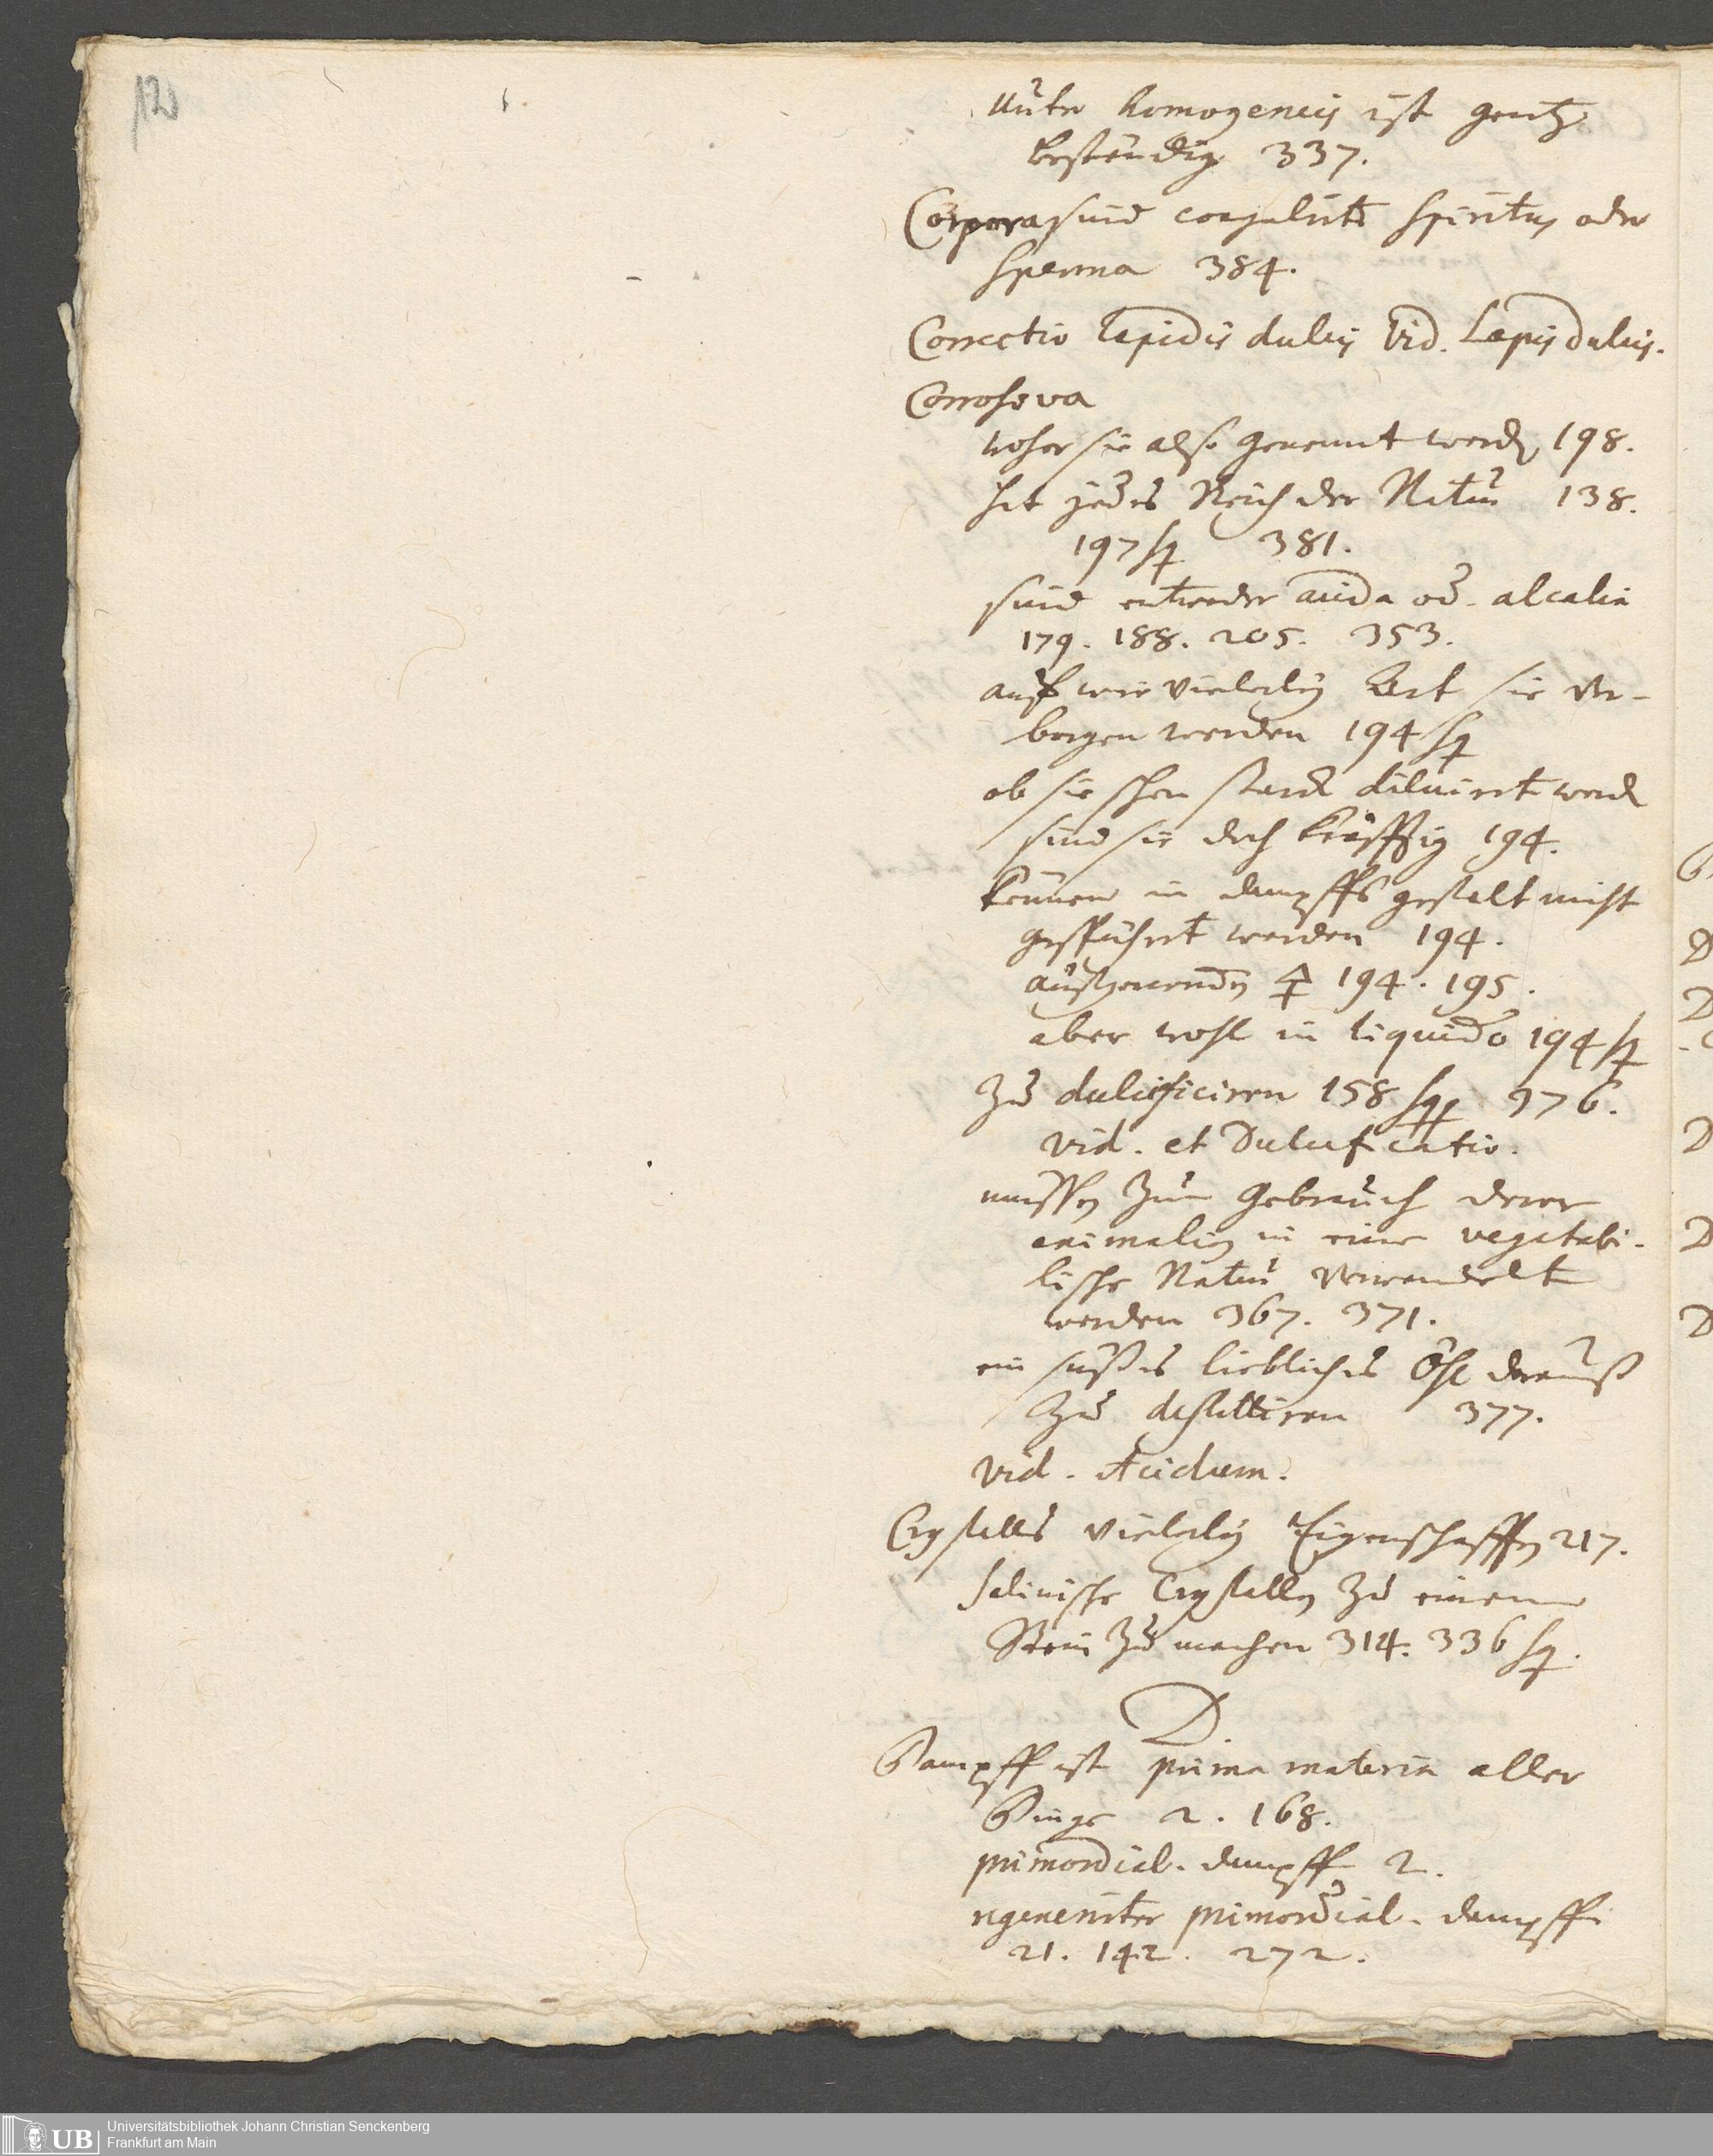 12
Natur homogeneis ist gantz
beständig 337.
Corpora sind coagulirte Spiritus oder
Sperma 384.
Correctio Lapidis dulcis vid. Lapis dulcis.
Corrosiva
woher sie also genennt werden 198.
hat jedes Reich der Natur 138.
197 sq 381.
sind entweder acida od. alcalia
179. 188. 205. 353.
auf wie vielerley Art sie ver-
borgen werden 194 sq
ob sie schon starck diluirt werden
sind sie doch kräfftig 194.
können in dampffs gestalt nicht
geführt werden 194.
außgenommen 194. 195.
aber wohl in liquido 194 sq
zu dulcificiren 158 sqq 376.
vid. et Dulcificatio.
müssen zum Gebrauch derer
animalien in eine vegetabi-
lische Natur verwandelt
werden 367. 371.
ein süßes liebliches Öhl darauß
zu destilliren 377.
vid. Acidum.
Crystalls vielerley Eigenschafften 217.
Salinische Crystallen zu einem
Stein zu machen 314. 336 sq.
D.
Dampff ist prima materia aller
Dinge 2. 168.
primordial-dampff 2.
regenerirter primordial-dampff
21. 142. 272.
UB
Universitätsbibliothek Johann Christian Senckenberg
Frankfurt am Main